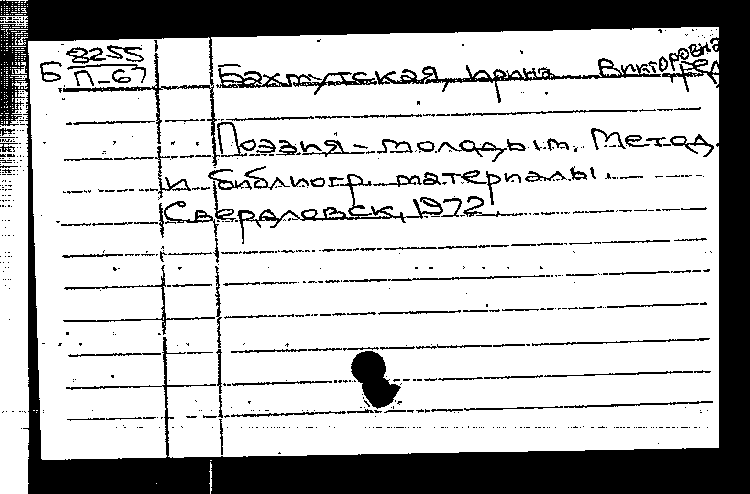 Б 8255
П-67
Бахмутская, Ирина Викторовна
ред
Поэзия - молодым. Метод.
и библиогр. материалы.
Свердловск, 1972.